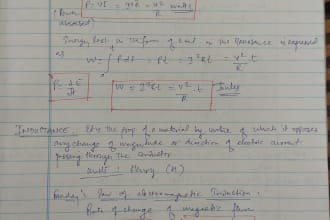 P = VI = I²R = V²/R watts
(Power
Energy lost in the form of heat in the Resistance is expressed
as W = ∫ P dt = Pt = I²Rt = V²/R t
P = dE/dt W = I²Rt = V²/R . t Joules
INDUCTANCE It is the prop of a material by virtue of which it opposes
any change of magnitude or direction of electric current
passing through the conductor
unit : Henry (H)
Faraday's law of electromagnetic Induction :
Rate of change of magnetic flux